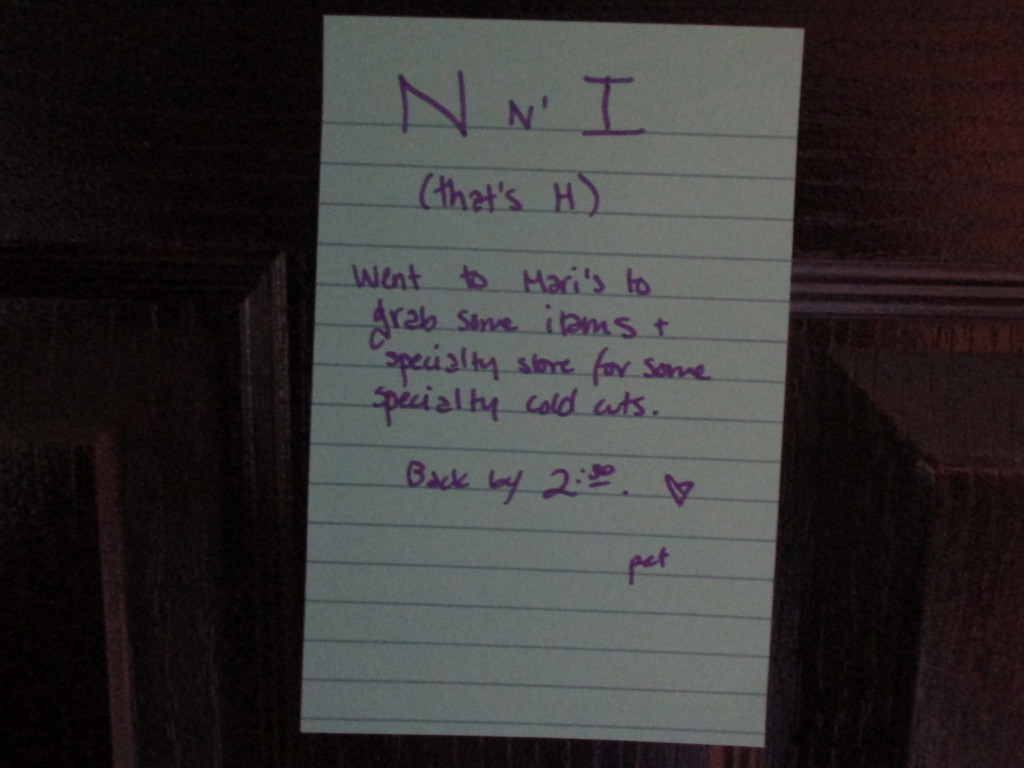 N N' I
(that's H)
Went to Mari's to
grab some items +
specialty store for some
specialty cold cuts.
Back by 2:30. ♡
pet